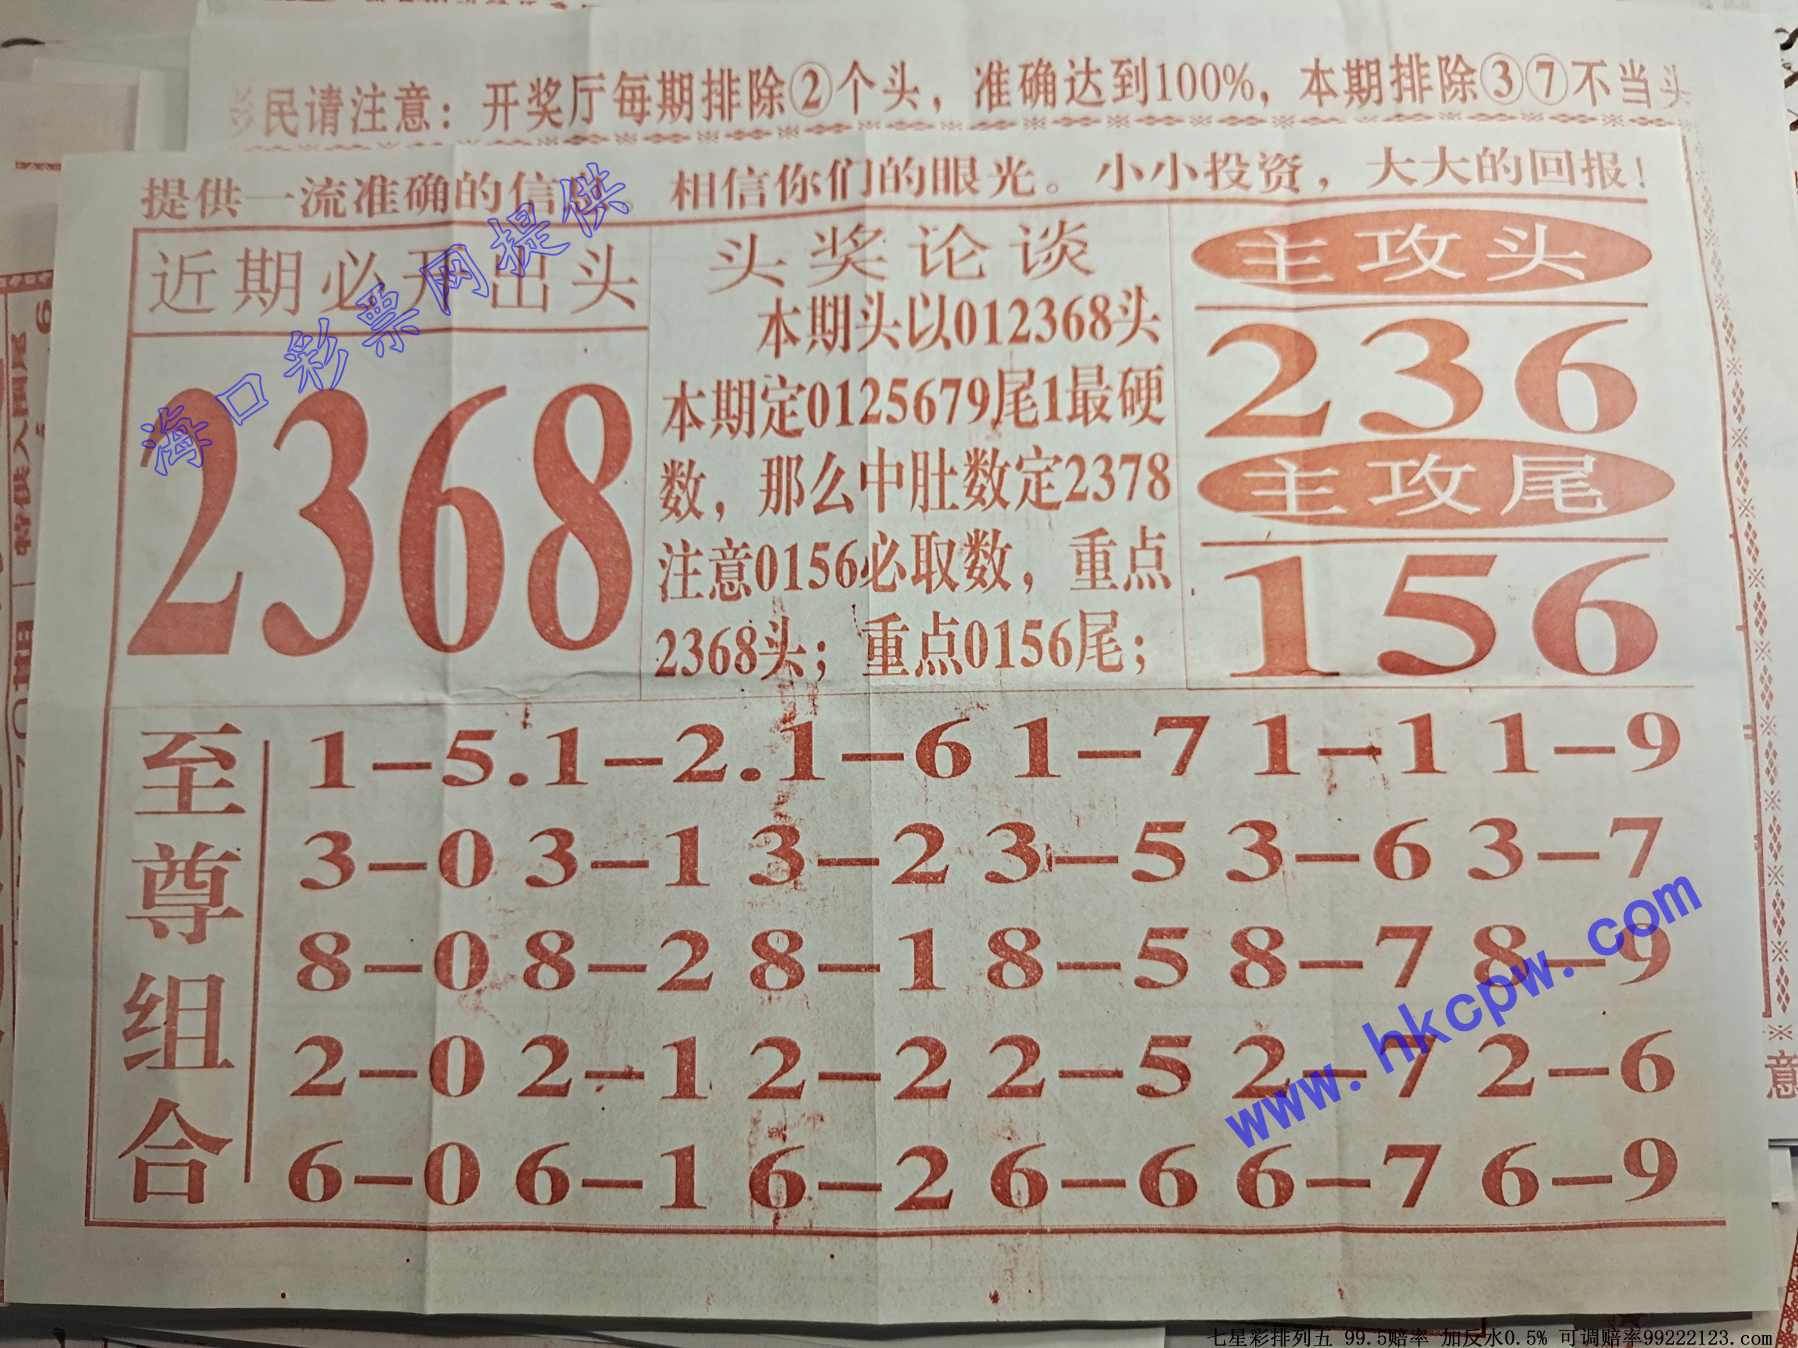 民请注意：开奖厅每期排除②个头，准确达到100%，本期排除③⑦不当头
提供一流准确的信 相信你们的眼光。小小投资，大大的回报！
近期必开出头
2368
头奖论谈
本期头以012368头
本期定0125679尾1最硬
数，那么中肚数定2378
注意0156必取数，重点
2368头；重点0156尾；
主攻头
236
主攻尾
156
至尊组合
1-5.1-2.1-6 1-7 1-1 1-9
3-0 3-1 3-2 3-5 3-6 3-7
8-0 8-2 8-1 8-5 8-7 8-9
2-0 2-1 2-2 2-5 2-7 2-6
6-0 6-1 6-2 6-6 6-7 6-9
海口彩票网提供
www.hkcpw.com
意
七星彩排列五 99.5赔率 加反水0.5% 可调赔率99222123.com